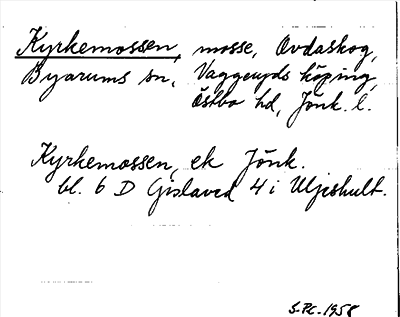 Kyrkemossen, mosse, Ovdaskog,
Byarums sn, Vaggeryds köping,
Östbo hd, Jönk. l.
Kyrkemossen, ek Jönk.
bl. 6 D Gislaved 4 i Uljeshult.
S.PC. 1958